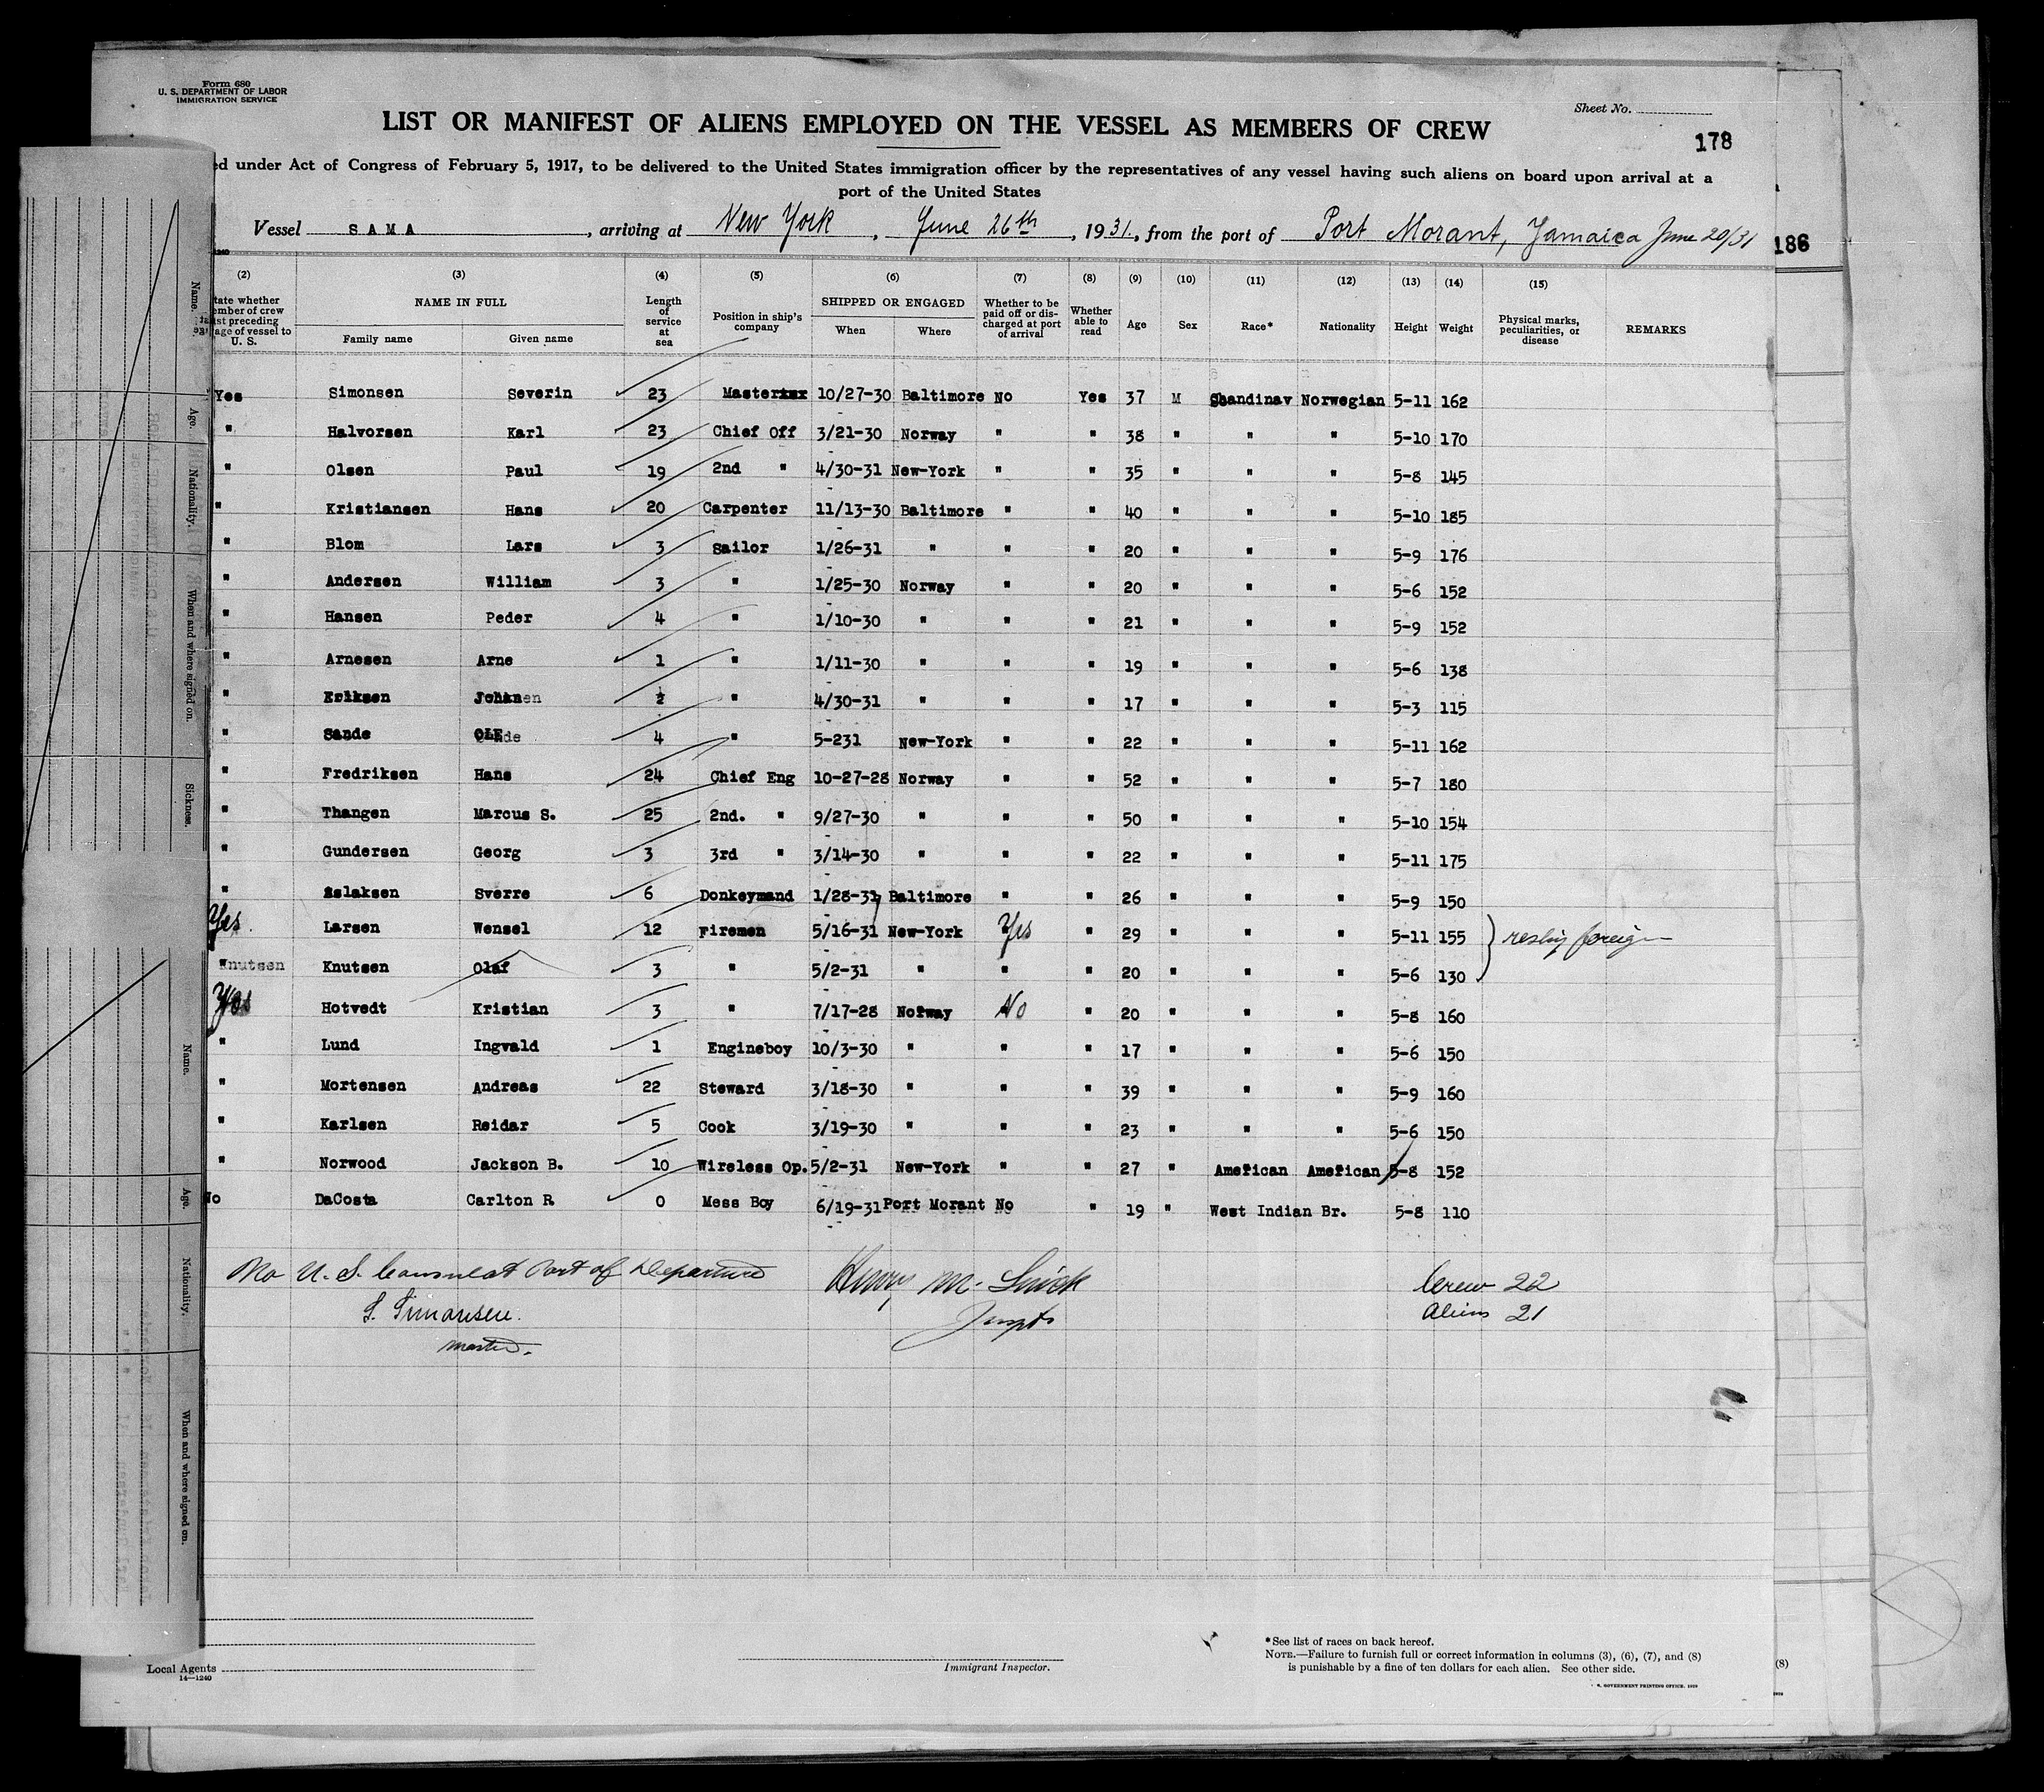 Form 680
U. S. DEPARTMENT OF LABOR
IMMIGRATION SERVICE
Sheet No.
LIST OR MANIFEST OF ALIENS EMPLOYED ON THE VESSEL AS MEMBERS OF CREW
178
ed under Act of Congress of February 5, 1917, to be delivered to the United States immigration officer by the representatives of any vessel having such aliens on board upon arrival at a
port of the United States
Vessel SAMA, arriving at New York, June 26th, 1931, from the port of Port Morant, Jamaica June 20/31
186
(2) (3) (4) (5) (6) (7) (8) (9) (10) (11) (12) (13) (14) (15)
tate whether ember of crew st preceding age of vessel to U. S. NAME IN FULL Family name Given name Length of service at sea Position in ship's company SHIPPED OR ENGAGED When Where Whether to be paid off or discharged at port of arrival Whether able to read Age Sex Race* Nationality Height Weight Physical marks, peculiarities, or disease REMARKS
Yes Simonsen Severin 23 Master 10/27-30 Baltimore No Yes 37 M Scandinav Norwegian 5-11 162
" Halvorsen Karl 23 Chief Off 3/21-30 Norway " " 38 " " " 5-10 170
" Olsen Paul 19 2nd " 4/30-31 New-York " " 35 " " " 5-8 145
" Kristiansen Hans 20 Carpenter 11/13-30 Baltimore " " 40 " " " 5-10 185
" Blom Lars 3 Sailor 1/26-31 " " " 20 " " " 5-9 176
" Andersen William 3 " 1/25-30 Norway " " 20 " " " 5-6 152
" Hansen Peder 4 " 1/10-30 " " " 21 " " " 5-9 152
" Arnesen Arne 1 " 1/11-30 " " " 19 " " " 5-6 138
" Eriksen Johan " 4/30-31 " " " 17 " " " 5-3 115
" Sande OLE 4 " 5-231 New-York " " 22 " " " 5-11 162
" Fredriksen Hans 24 Chief Eng 10-27-28 Norway " " 52 " " " 5-7 180
" Thangen Marcus S. 25 2nd. " 9/27-30 " " " 50 " " " 5-10 154
" Gundersen Georg 3 3rd " 3/14-30 " " " 22 " " " 5-11 175
" Aslaksen Sverre 6 Donkeymand 1/28-31 Baltimore " " 26 " " " 5-9 150
Yes Larsen Wensel 12 Firemen 5/16-31 New-York Yes " 29 " " " 5-11 155 reship foreign
" Knutsen Knutsen Olaf 3 " 5/2-31 " " " 20 " " " 5-6 130
Yes Hotvedt Kristian 3 " 7/17-28 Norway No " 20 " " " 5-8 160
" Lund Ingvald 1 Engineboy 10/3-30 " " " 17 " " " 5-6 150
" Mortensen Andreas 22 Steward 3/18-30 " " " 39 " " " 5-9 160
" Karlsen Reidar 5 Cook 3/19-30 " " " 23 " " " 5-6 150
" Norwood Jackson B. 10 Wireless Op. 5/2-31 New-York " " 27 " American American 5-8 152
No DaCosta Carlton R 0 Mess Boy 6/19-31 Port Morant No " 19 " West Indian Br. 5-8 110
No U. S. Consul at Port of Departure
S. Simonsen.
Master.
Henry M.
Inspt
Crew 22
Aliens 21
Name.
Age.
Nationality.
When and where signed on.
Sickness.
Name.
Age.
Nationality.
When and where signed on.
Local Agents
14—1240
Immigrant Inspector.
*See list of races on back hereof.
NOTE.—Failure to furnish full or correct information in columns (3), (6), (7), and (8)
is punishable by a fine of ten dollars for each alien. See other side.
GOVERNMENT PRINTING OFFICE
(8)